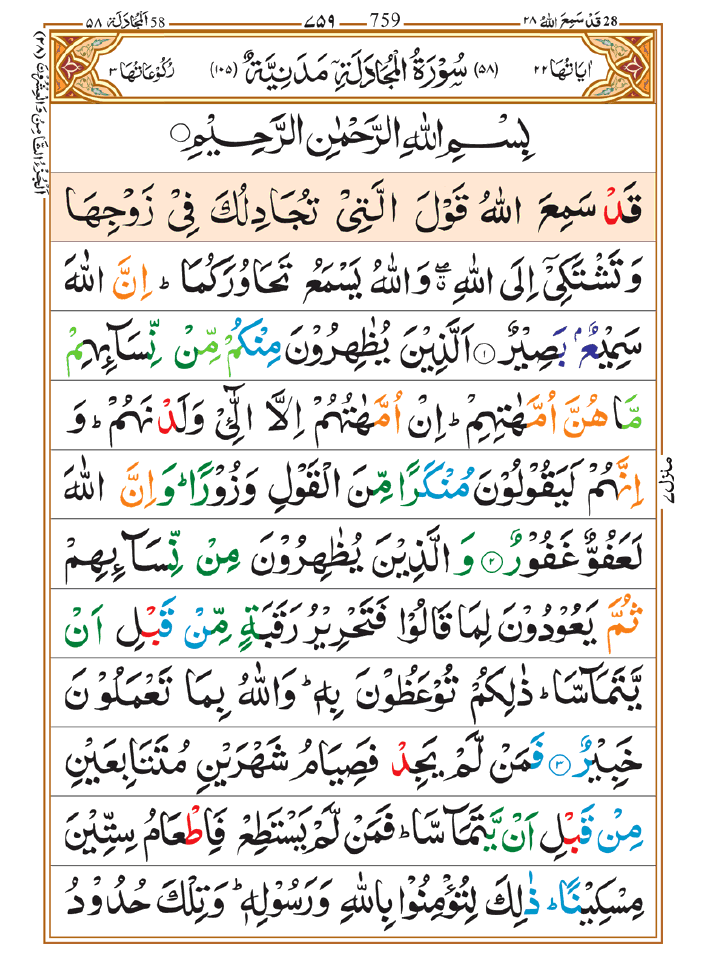 ٥٨ اَلْمُجَادَلَة 58 ٧٥٩ 759 ٢٨ قَدْ سَمِعَ اللّٰهُ 28
اٰيَاتُهَا ٢٢ (٥٨) سُوْرَةُ الْمُجَادَلَةِ مَدَنِيَّةٌ (١٠٥) رُكُوْعَاتُهَا ٣
بِسْمِ اللّٰهِ الرَّحْمٰنِ الرَّحِيْمِ
قَدْ سَمِعَ اللّٰهُ قَوْلَ الَّتِىْ تُجَادِلُكَ فِىْ زَوْجِهَا
وَتَشْتَكِىْۤ اِلَى اللّٰهِ ۖ وَاللّٰهُ يَسْمَعُ تَحَاوُرَكُمَا ؕ اِنَّ اللّٰهَ
سَمِيْعٌۢ بَصِيْرٌ ١ اَلَّذِيْنَ يُظٰهِرُوْنَ مِنْكُمْ مِّنْ نِّسَآئِهِمْ
مَّا هُنَّ اُمَّهٰتِهِمْ ؕ اِنْ اُمَّهٰتُهُمْ اِلَّا الّٰٓـِٔىْ وَلَدْنَهُمْ ؕ وَ
اِنَّهُمْ لَيَقُوْلُوْنَ مُنْكَرًا مِّنَ الْقَوْلِ وَزُوْرًا ؕ وَاِنَّ اللّٰهَ
لَعَفُوٌّ غَفُوْرٌ ٢ وَالَّذِيْنَ يُظٰهِرُوْنَ مِنْ نِّسَآئِهِمْ
ثُمَّ يَعُوْدُوْنَ لِمَا قَالُوْا فَتَحْرِيْرُ رَقَبَةٍ مِّنْ قَبْلِ اَنْ
يَّتَمَآسَّا ؕ ذٰلِكُمْ تُوْعَظُوْنَ بِهٖ ؕ وَاللّٰهُ بِمَا تَعْمَلُوْنَ
خَبِيْرٌ ٣ فَمَنْ لَّمْ يَجِدْ فَصِيَامُ شَهْرَيْنِ مُتَتَابِعَيْنِ
مِنْ قَبْلِ اَنْ يَّتَمَآسَّا ؕ فَمَنْ لَّمْ يَسْتَطِعْ فَاِطْعَامُ سِتِّيْنَ
مِسْكِيْنًا ؕ ذٰلِكَ لِتُؤْمِنُوْا بِاللّٰهِ وَرَسُوْلِهٖ ؕ وَتِلْكَ حُدُوْدُ
اَلْجُزْءُ الثَّامِنُ وَالْعِشْرُوْنَ (٢٨)
منزل ٧